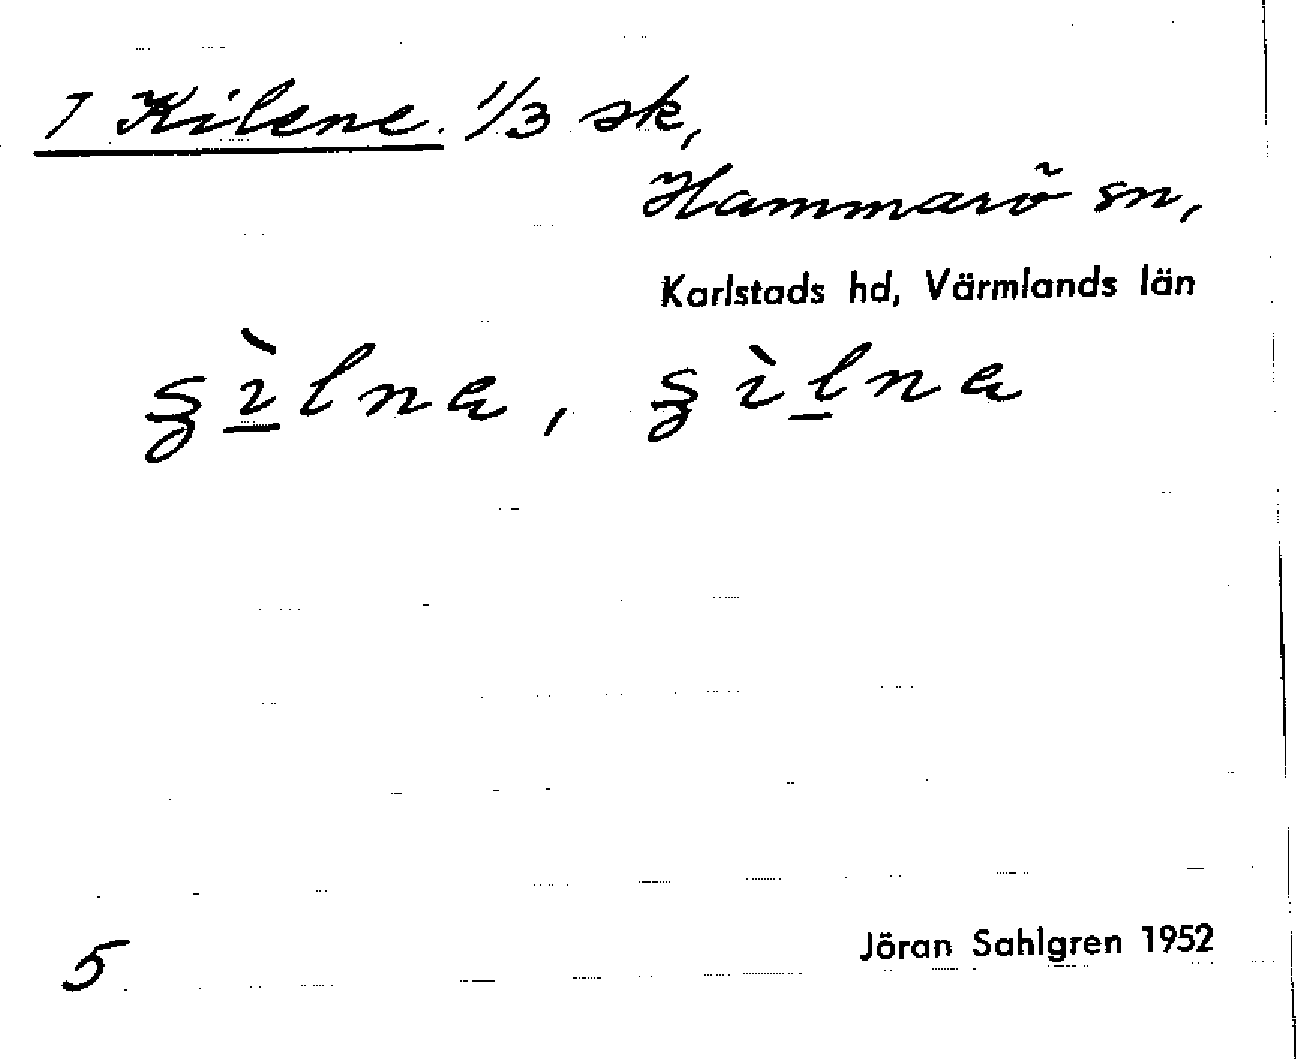 7 Kilene. 1/3 sk,
Hammarö sn,
Karlstads hd, Värmlands län
5
Jöran Sahlgren 1952